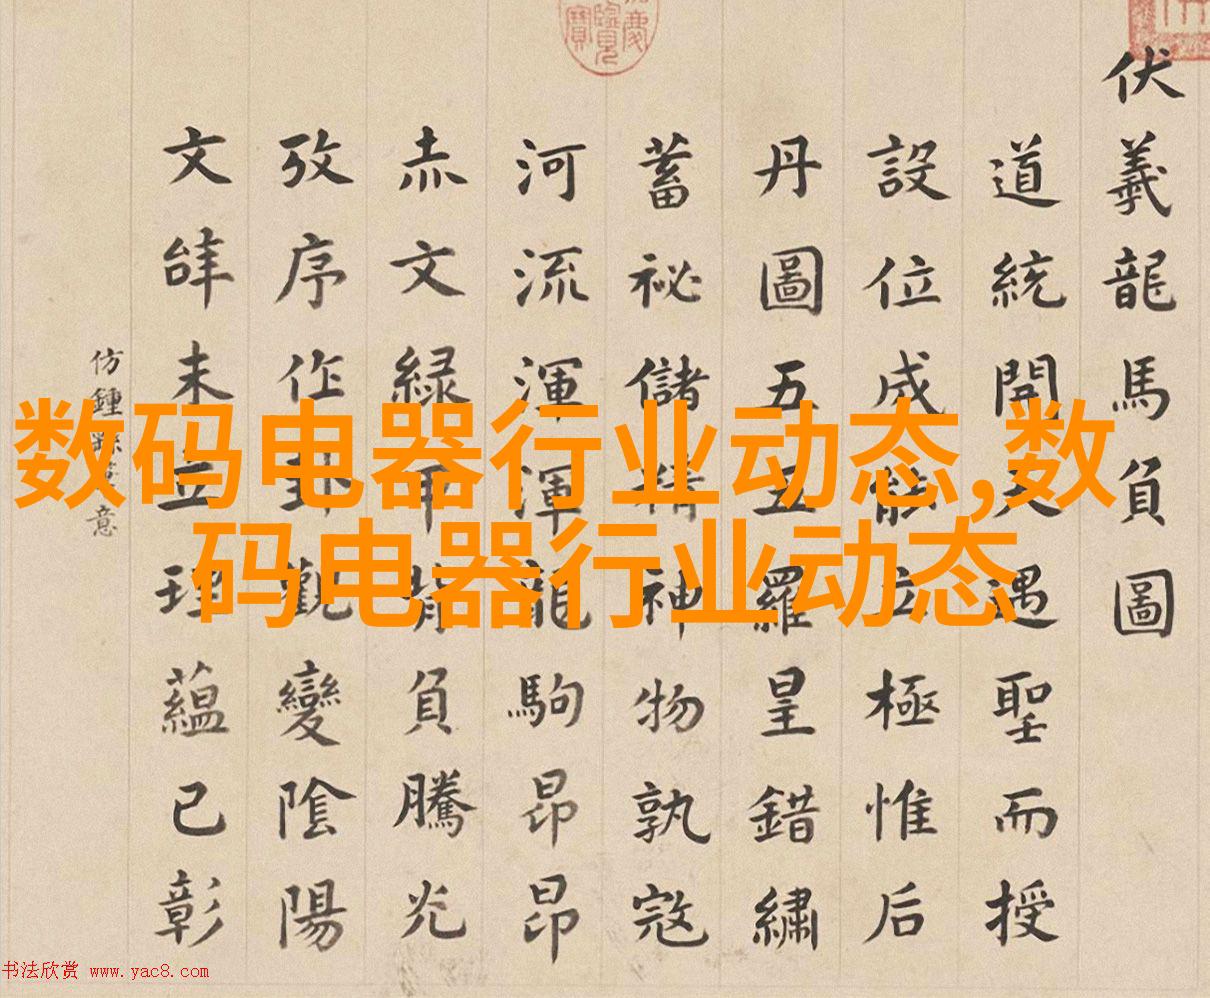 伏羲龍馬負圖
道統開天遇聖而授
設位成能立極惟后
丹圖五五羅皇錯繡
蓄祕儲精神物孰寇
河流渾渾龍駒昂昂
赤文緑甲背負騰光
攷序作卦觀變陰陽
文辞未立理蘊已彰
仿鍾繇意
数码电器行业动态,数
码电器行业动态
书法欣赏 www.yac8.com